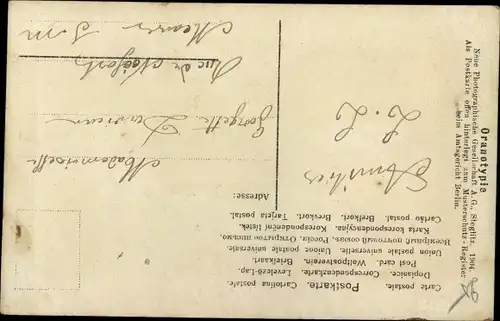 Postkarte.
Carte postale. Cartolina postale.
Dopisnice. Correspondenzkarte. Levelező-Lap.
Post card. Weltpostverein. Briefkaart.
Union postale universelle. Union postale universale.
Всемірный почтовый союзъ. Россія. Открытое письмо.
Karta korespondencyjna. Korespondenční lístek.
Cartão postal. Brefkort. Brevkort. Tarjeta postal.
Adresse:
Amitiés
L. L
Mademoiselle
Georgette
Rue de
Oranotypie
Neue Photographische Gesellschaft A. G., Steglitz. 1904.
Als Postkarte offen hinterlegt zum Musterschutz-Register
beim Amtsgericht Berlin.